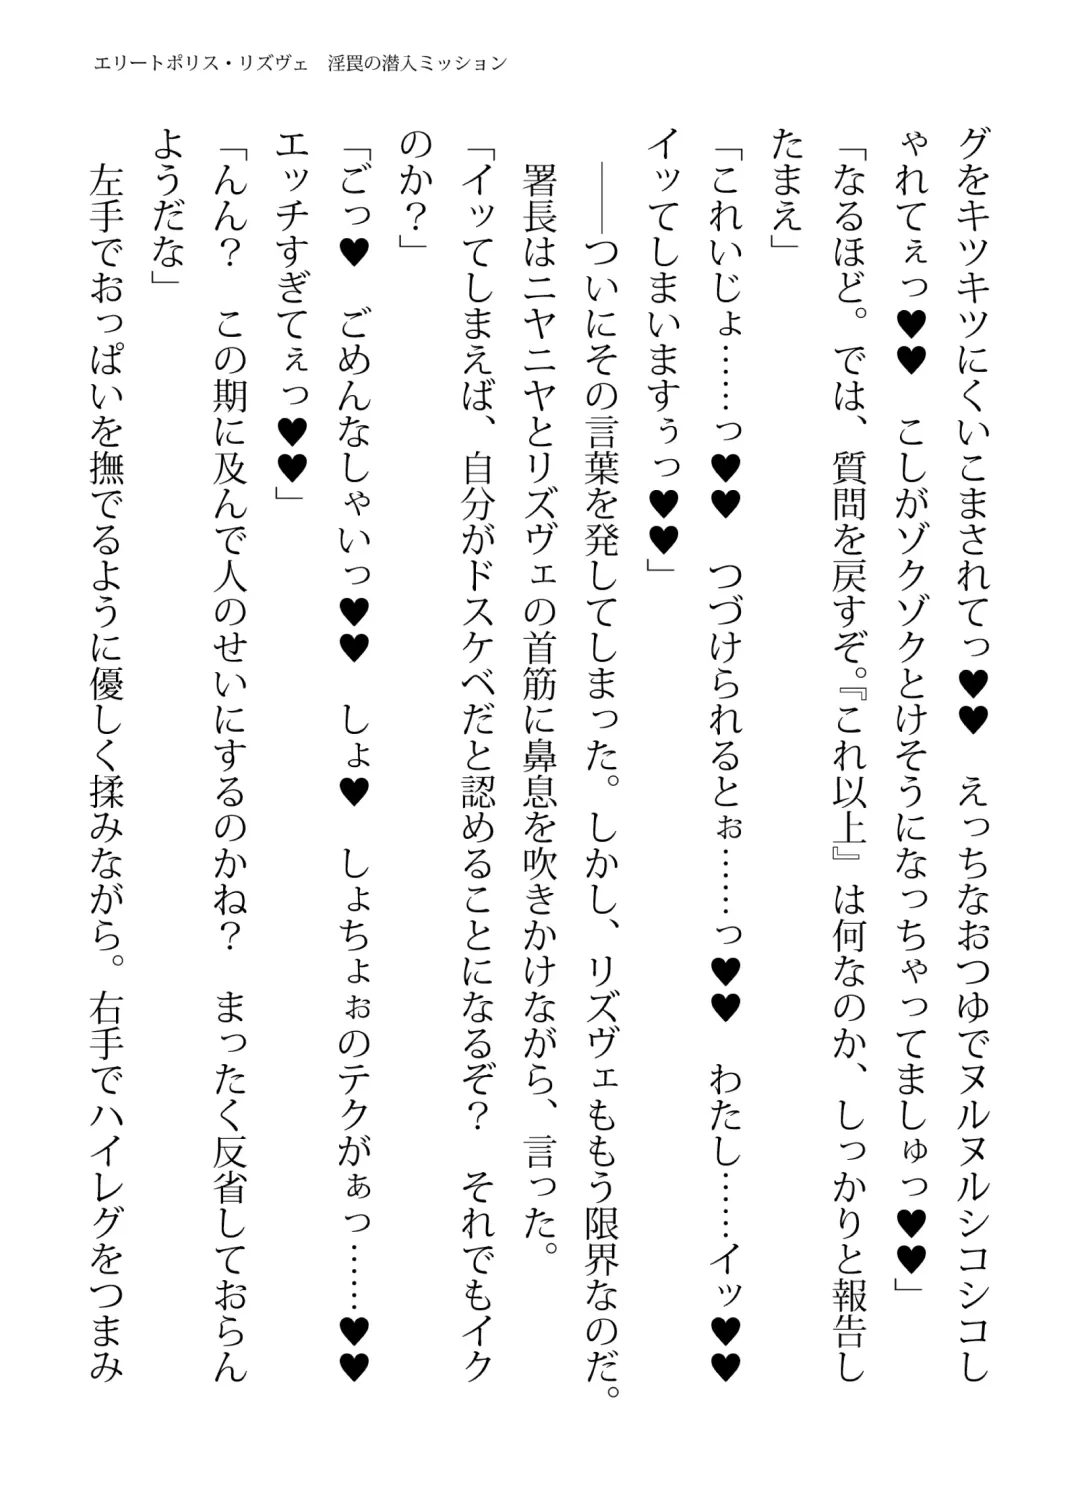 エリートポリス・リズヴェ　淫罠の潜入ミッション
グをキツキツにくいこまされてっ♥♥　えっちなおつゆでヌルヌルシコシコし
ゃれてぇっ♥♥　こしがゾクゾクとけそうになっちゃってましゅっ♥♥」
「なるほど。では、質問を戻すぞ。『これ以上』は何なのか、しっかりと報告し
たまえ」
「これいじょ……っ♥♥　つづけられるとぉ……っ♥♥　わたし……イッ♥♥
イッてしまいますぅっ♥♥」
　――ついにその言葉を発してしまった。しかし、リズヴェももう限界なのだ。
　署長はニヤニヤとリズヴェの首筋に鼻息を吹きかけながら、言った。
「イッてしまえば、自分がドスケベだと認めることになるぞ？　それでもイク
のか？」
「ごっ♥　ごめんなしゃいっ♥♥　しょ♥　しょちょぉのテクがぁっ……♥♥
エッチすぎてぇっ♥♥」
「んん？　この期に及んで人のせいにするのかね？　まったく反省しておらん
ようだな」
　左手でおっぱいを撫でるように優しく揉みながら。右手でハイレグをつまみ